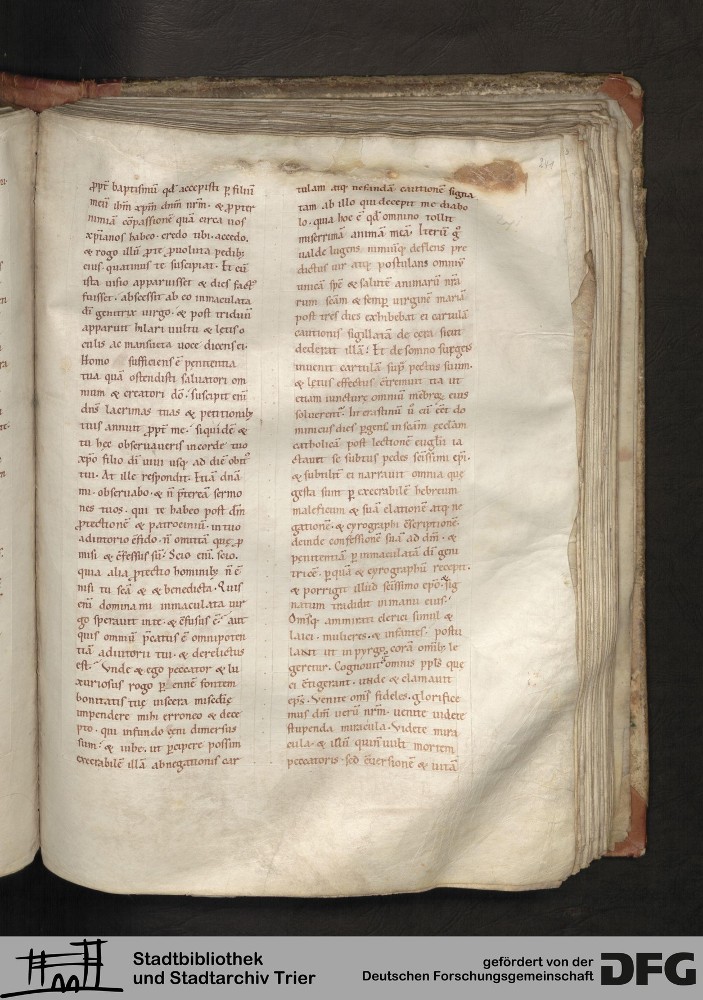 ꝓpt̄ baptismū qđ accepisti ꝑ filiū
meū ihm̄ xp̄m dn̄m nr̄m · & ꝓpter
nimiā cōpassionē quā circa uos
xp̄ianos habeo · credo tibi · accedo ·
& rogo illū ꝓuoluta pedib;
eius quatinus te suscipiat · Et cū
ista uisio apparuisset & dies fact᾽
fuisset · abscessit ab eo inmaculata
dī genitrix uirgo · & post triduū
apparuit hilari uultu & letis o
culis ac mansueta uoce dicens ei ·
Homo sufficiens ē penitentia
tua quā ostendisti saluatori om
nium & creatori dō · suscipit eni
dn̄s lacrimas tuas & petitionib;
tuis annuit ꝓpt̄ me · siquidē &
tu hec obseruaueris in corde tuo
xp̄o filio dī uiui usq; ad diē obit᾽
tui · At ille respondit · Etiā dn̄a
mi · obseruabo · & n̄ p̄tereā sermo
nes tuos · qui te habeo post dm̄
ꝓtectionē & patrociniū · in tuo
adiutorio cf̄ido · n̄ omittā quę ꝓ
misi & cf̄essus sū · Scio eni · scio ·
quia alia ꝓtectio hominib; n̄ ē
nisi tu scā & & benedicta · Quis
eni domina mi inmaculata uir
go sperauit in te · & cf̄usus ē · aut
quis omniū p̄catus ē omnipoten
tiā adiutorii tui · & derelictus
est · Vnde & ego peccator & lu
xuriosus rogo ꝑennē fontem
bonitatis tuę uiscera misc̄dię
inpendere mihi erroneo & dece
pto · qui in ꝓfundo ceni dimersus
sum · & iube · ut ꝑcipere possim
execrabilē illā abnegationis car
tulam atq; nefandā cautionē signa
tam ab illo qui decepit me diabo
lo · quia hoc ē qđ omnino tollit
miserrimā animā meā · Iterū g̊
ualde lugens nimiūq; deflens pre
dictus uir atq; postulans omniū
unicā spē & salutē animarū nr̄a
rum scām & semꝑ uirginē mariā
post tres dies exhibebat ei cartulā
cautionis sigillatā de cera sicut
dederat illā · Et de somno surgens
inuenit cartulā suꝑ pectus suum ·
& letus effectus c̄tremuit ita ut
etiam iuncturę omniū mēbroꝝ eius
soluerent · In crastinū ū cū cēt do
minicus dies ꝑgens in scām ecclam
catholicā post lectionē euglii ia
ctauit se subtus pedes scissimi epi ·
& subtilit̄ ei narrauit omnia quę
gesta sunt ꝑ execrabilē hebreum
maleficum & suā elationē atq; ne
gationē · & cyrographi c̄scriptionē ·
deinde confessionē suā ad dm̄ · &
penitentiā ꝑ inmaculatā dī geni
tricē · ꝑ quā & cyrographū recepit ·
& porrigit illud scissimo epo · & sig
natum tradidit in manu eius ·
Om̄sq; ammirati clerici simul &
laici · mulieres & infantes · postu
lauit ut in pyrgo corā omīb; le
geretur · Cognouit omnis ppl̄s quę
ei c̄tigerant · unde & clamauit
eps · Venite om̄s fideles · glorifice
mus dm̄ uerū nr̄m · uenite uidete
stupenda miracula · Videte mira
cula · & illū qui n̄ uult mortem
peccatoris · sed c̄uersionē & uitā
Stadtbibliothek
und Stadtarchiv Trier
gefördert von der
Deutschen Forschungsgemeinschaft
DFG